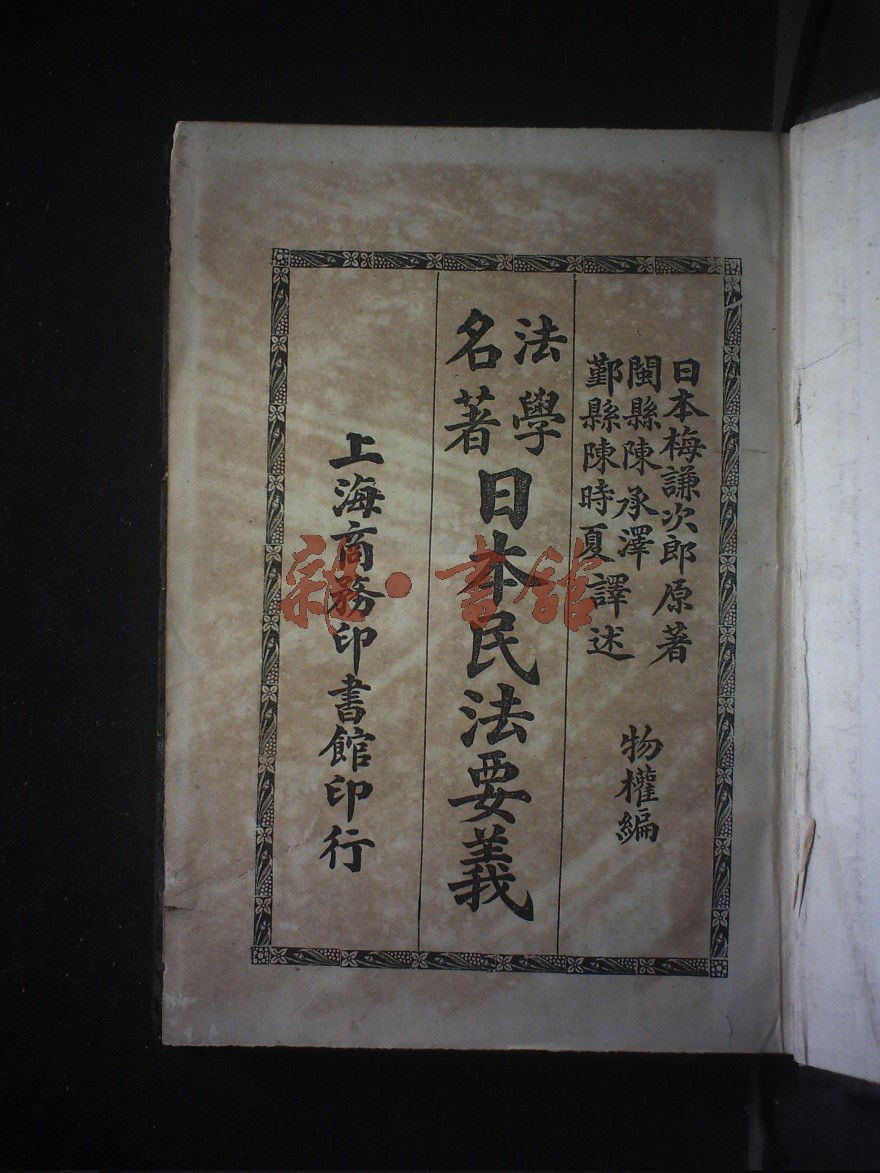 日本梅謙次郎原著
閩縣陳承澤
鄞縣陳時夏譯述
物權編
法學
名著
日本民法要義
上海商務印書館印行
雜·書館